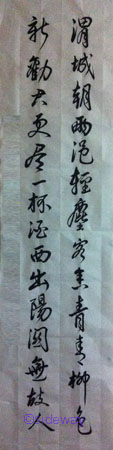 渭城朝雨浥輕塵客舍青青柳色
新勸君更盡一杯酒西出陽關無故人
Sideway